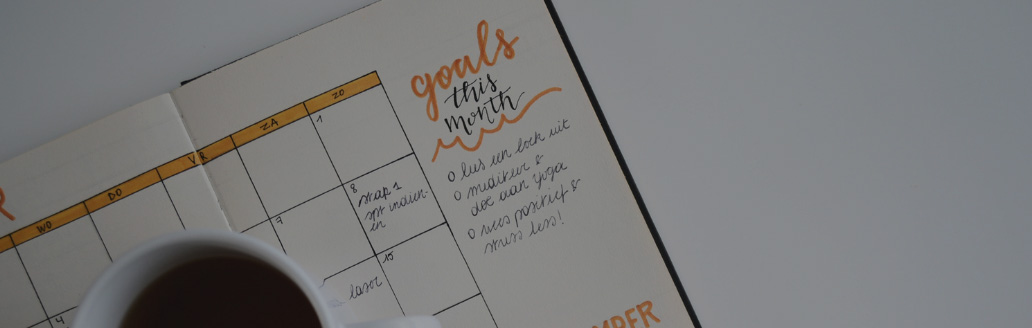 goals
this
month
o lees een boek uit
o mediteer &
doe aan yoga
o wees positief &
stress less!
WO
DO
VR
ZA
ZO
1
7
8
stap 1
15
laser
4
MBER
R